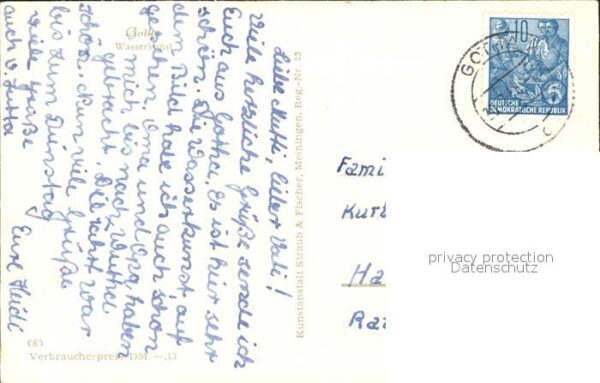 Gotha
Wasserkunst
Liebe Mutti, lieber Vati!
Viele herzliche Grüße sende ich
Euch aus Gotha. Es ist hier sehr
schön. Die Wasserkunst auf
dem Bild habe ich auch schon
gesehen. Oma und Opa haben
mich bis nach Wutha
gebracht. Die Fahrt war
schön. Nun viele Grüße
bis zum Dienstag
viele Grüße
auch v. Jutta
Eure Heidi
Kunstanstalt Straub & Fischer, Meiningen, Reg.-Nr. 23
089
Verbraucherpreis DM —,15
10
GOTHA
DEUTSCHE
DEMOKRATISCHE REPUBLIK
Fami
Kurt
Ha
privacy protection
Datenschutz